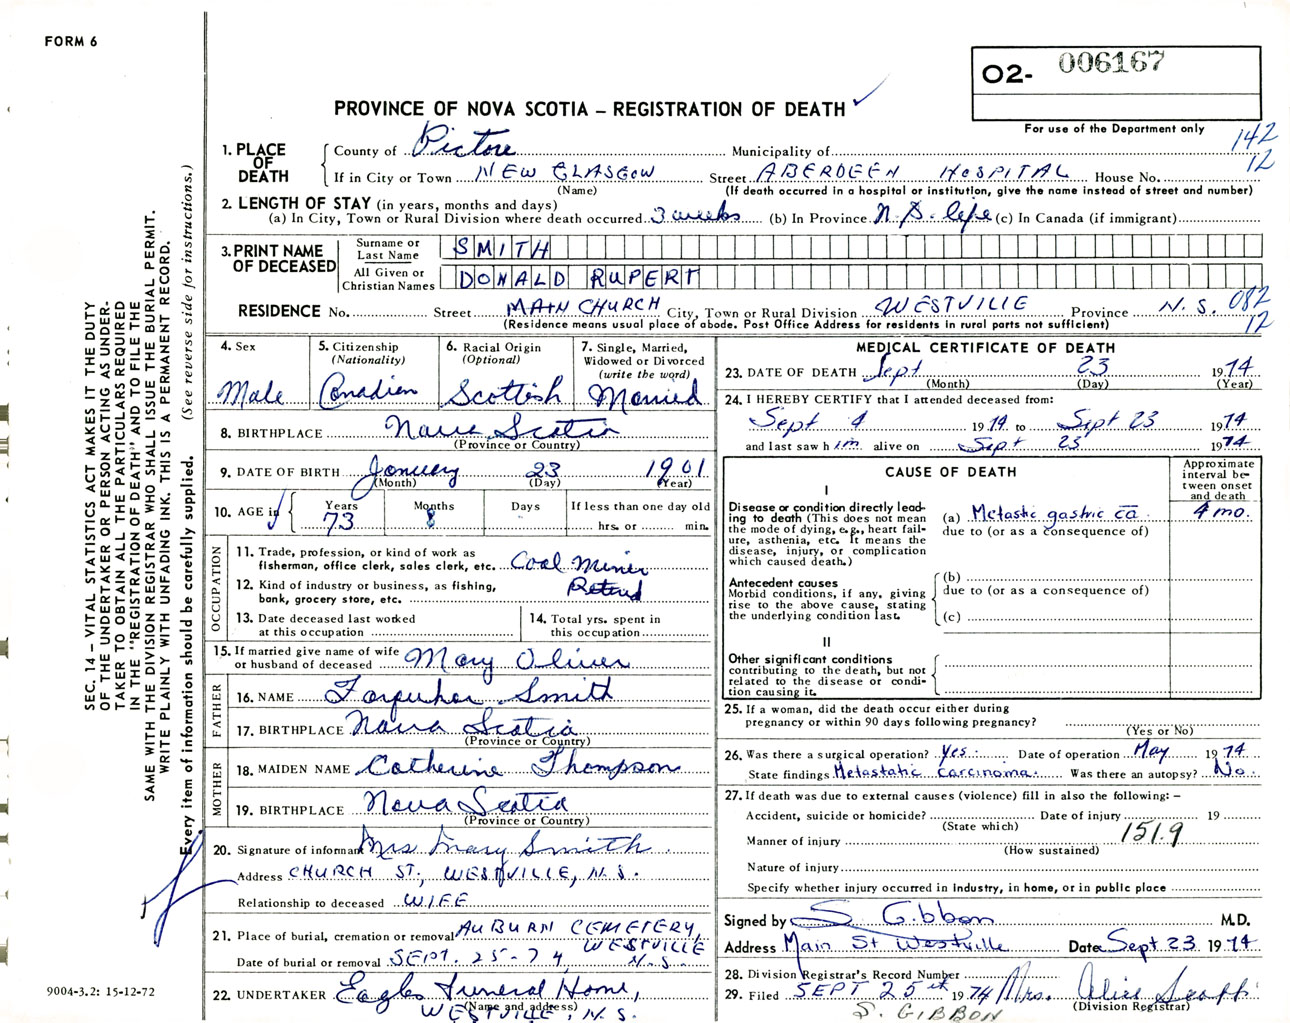 FORM 6
O2- 006167
For use of the Department only
PROVINCE OF NOVA SCOTIA – REGISTRATION OF DEATH
142
12
1. PLACE OF DEATH
County of Pictou Municipality of
If in City or Town NEW GLASGOW Street ABERDEEN HOSPITAL House No.
(Name) (If death occurred in a hospital or institution, give the name instead of street and number)
2. LENGTH OF STAY (in years, months and days)
(a) In City, Town or Rural Division where death occurred 3 weeks (b) In Province N.S. life (c) In Canada (if immigrant)
3. PRINT NAME OF DECEASED
Surname or Last Name SMITH
All Given or Christian Names DONALD RUPERT
RESIDENCE No. Street MAIN CHURCH City, Town or Rural Division WESTVILLE Province N.S.
082
12
(Residence means usual place of abode. Post Office Address for residents in rural parts not sufficient)
4. Sex
Male
5. Citizenship
(Nationality)
Canadian
6. Racial Origin
(Optional)
Scottish
7. Single, Married,
Widowed or Divorced
(write the word)
Married
8. BIRTHPLACE Nova Scotia
(Province or Country)
9. DATE OF BIRTH January 23 1901
(Month) (Day) (Year)
10. AGE in
Years Months Days If less than one day old
73 8 hrs. or min.
OCCUPATION
11. Trade, profession, or kind of work as
fisherman, office clerk, sales clerk, etc. Coal Miner
12. Kind of industry or business, as fishing,
bank, grocery store, etc. Retired
13. Date deceased last worked
at this occupation
14. Total yrs. spent in
this occupation
15. If married give name of wife
or husband of deceased Mary Oliver
FATHER
16. NAME Farquhar Smith
17. BIRTHPLACE Nova Scotia
(Province or Country)
MOTHER
18. MAIDEN NAME Catherine Thompson
19. BIRTHPLACE Nova Scotia
(Province or Country)
20. Signature of informant Mrs Mary Smith
Address CHURCH ST., WESTVILLE, N.S.
Relationship to deceased WIFE
21. Place of burial, cremation or removal AUBURN CEMETERY,
WESTVILLE
Date of burial or removal SEPT. 25-74, N.S.
22. UNDERTAKER Eagles Funeral Home,
(Name and address)
WESTVILLE, N.S.
MEDICAL CERTIFICATE OF DEATH
23. DATE OF DEATH Sept 23 1974
(Month) (Day) (Year)
24. I HEREBY CERTIFY that I attended deceased from:
Sept 4 1974 to Sept 23 1974
and last saw h im alive on Sept 23 1974
CAUSE OF DEATH
Approximate
interval be-
tween onset
and death
I
Disease or condition directly lead-
ing to death (This does not mean
the mode of dying, e.g., heart fail-
ure, asthenia, etc. It means the
disease, injury, or complication
which caused death.)
(a) Metastic gastric ca 4 mo.
due to (or as a consequence of)
Antecedent causes
Morbid conditions, if any, giving
rise to the above cause, stating
the underlying condition last.
(b)
due to (or as a consequence of)
(c)
II
Other significant conditions
contributing to the death, but not
related to the disease or condi-
tion causing it.
25. If a woman, did the death occur either during
pregnancy or within 90 days following pregnancy?
(Yes or No)
26. Was there a surgical operation? Yes. Date of operation May 1974
State findings Metastatic carcinoma. Was there an autopsy? No.
27. If death was due to external causes (violence) fill in also the following: –
Accident, suicide or homicide? Date of injury 19
(State which)
Manner of injury 151.9
(How sustained)
Nature of injury
Specify whether injury occurred in industry, in home, or in public place
Signed by S Gibbon M.D.
Address Main St Westville Date Sept 23 1974
28. Division Registrar's Record Number
29. Filed SEPT 25th 1974 Mrs. Alice Scott
(Division Registrar)
S. GIBBON
SEC. 14 – VITAL STATISTICS ACT MAKES IT THE DUTY
OF THE UNDERTAKER OR PERSON ACTING AS UNDER-
TAKER TO OBTAIN ALL THE PARTICULARS REQUIRED
IN THE "REGISTRATION OF DEATH" AND TO FILE THE
SAME WITH THE DIVISION REGISTRAR WHO SHALL ISSUE THE BURIAL PERMIT.
WRITE PLAINLY WITH UNFADING INK. THIS IS A PERMANENT RECORD.
Every item of information should be carefully supplied. (See reverse side for instructions.)
9004-3.2: 15-12-72